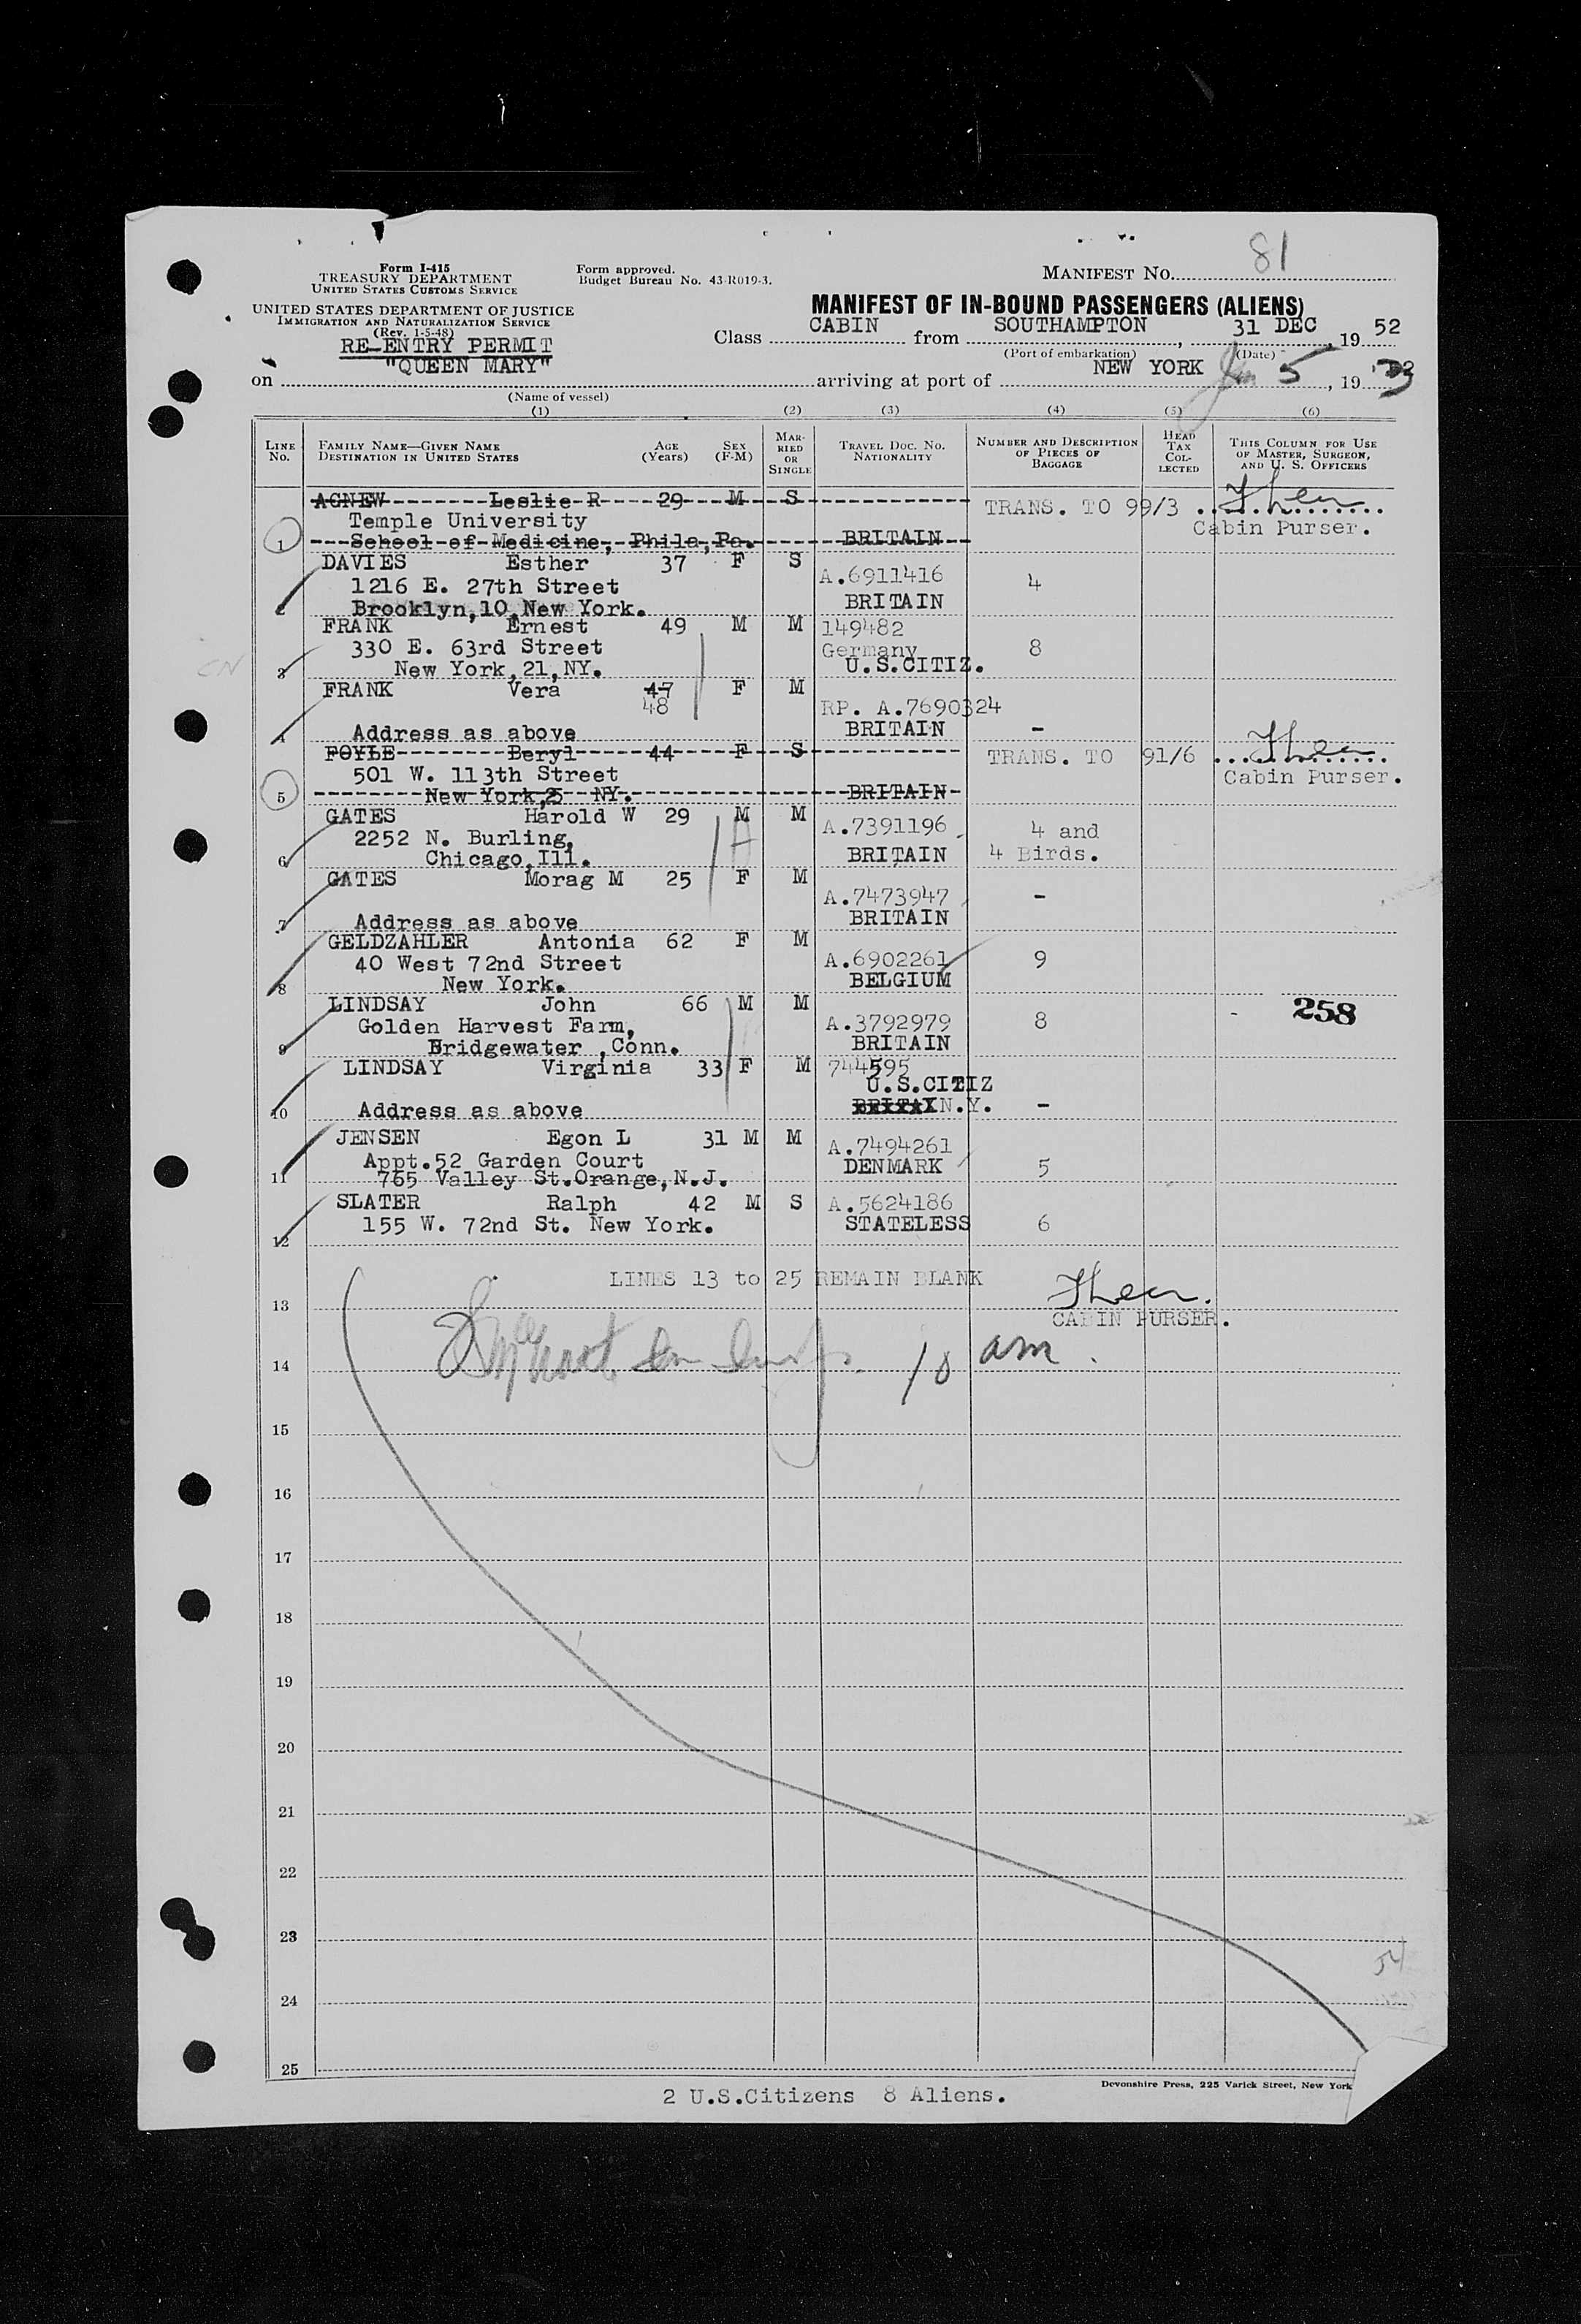 81
Form I-415
TREASURY DEPARTMENT
UNITED STATES CUSTOMS SERVICE
Form approved.
Budget Bureau No. 43-R019-3.
MANIFEST NO.
UNITED STATES DEPARTMENT OF JUSTICE
IMMIGRATION AND NATURALIZATION SERVICE
(Rev. 1-5-48)
MANIFEST OF IN-BOUND PASSENGERS (ALIENS)
RE-ENTRY PERMIT
Class CABIN from SOUTHAMPTON, 31 DEC, 19 52
(Port of embarkation) (Date)
on "QUEEN MARY" arriving at port of NEW YORK Jan 5, 19 53
(Name of vessel)
(1) (2) (3) (4) (5) (6)
LINE NO. FAMILY NAME—GIVEN NAME DESTINATION IN UNITED STATES AGE (Years) SEX (F-M) MARRIED OR SINGLE TRAVEL DOC. NO. NATIONALITY NUMBER AND DESCRIPTION OF PIECES OF BAGGAGE HEAD TAX COLLECTED THIS COLUMN FOR USE OF MASTER, SURGEON, AND U. S. OFFICERS
AGNEW Leslie R 29 M S TRANS. TO 99/3
Temple University Cabin Purser.
1 School of Medicine, Phila, Pa. BRITAIN
DAVIES Esther 37 F S A.6911416 4
1216 E. 27th Street
2 Brooklyn,10,New York. BRITAIN
FRANK Ernest 49 M M 149482
330 E. 63rd Street Germany 8
CN 3 New York,21,NY. U.S.CITIZ.
FRANK Vera 47 F M
48 RP. A.7690324
4 Address as above BRITAIN -
FOYLE Beryl 44 F S TRANS. TO 91/6
501 W. 113th Street Cabin Purser.
5 New York,25 NY. BRITAIN
GATES Harold W 29 M M A.7391196 4 and
2252 N. Burling,
6 Chicago,Ill. BRITAIN 4 Birds.
GATES Morag M 25 F M A.7473947 -
7 Address as above BRITAIN
GELDZAHLER Antonia 62 F M A.6902261 9
40 West 72nd Street
8 New York. BELGIUM
LINDSAY John 66 M M 258
Golden Harvest Farm, A.3792979 8 -
9 Bridgewater ,Conn. BRITAIN
LINDSAY Virginia 33 F M 744595
U.S.CITIZ
10 Address as above BRITAIN N.Y. -
JENSEN Egon L 31 M M A.7494261
Appt.52 Garden Court DENMARK 5
11 765 Valley St.Orange,N.J.
SLATER Ralph 42 M S A.5624186
155 W. 72nd St. New York. STATELESS 6
12
LINES 13 to 25 REMAIN BLANK
13 CABIN PURSER.
14 10 am.
15
16
17
18
19
20
21
22
23
24
25
Devonshire Press, 225 Varick Street, New York
2 U.S.Citizens 8 Aliens.